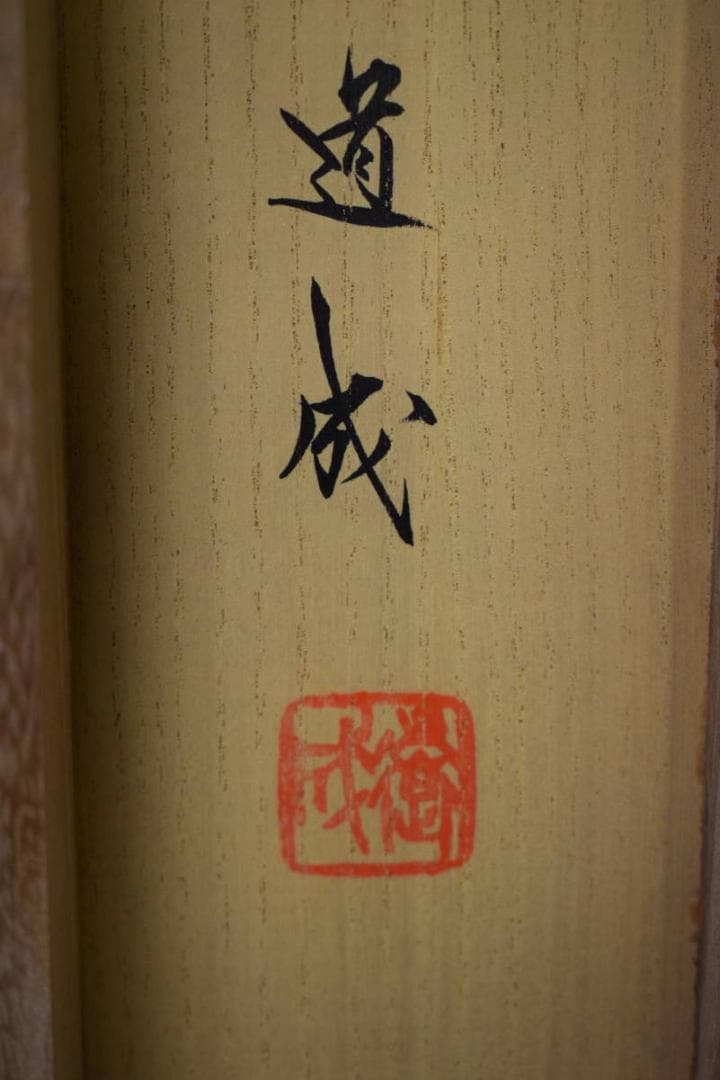 道成
道成